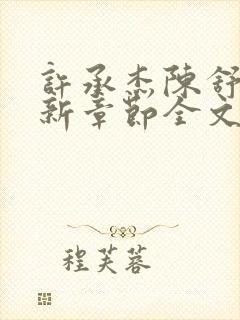 許承杰陳舒
新章節全文
程芙蓉